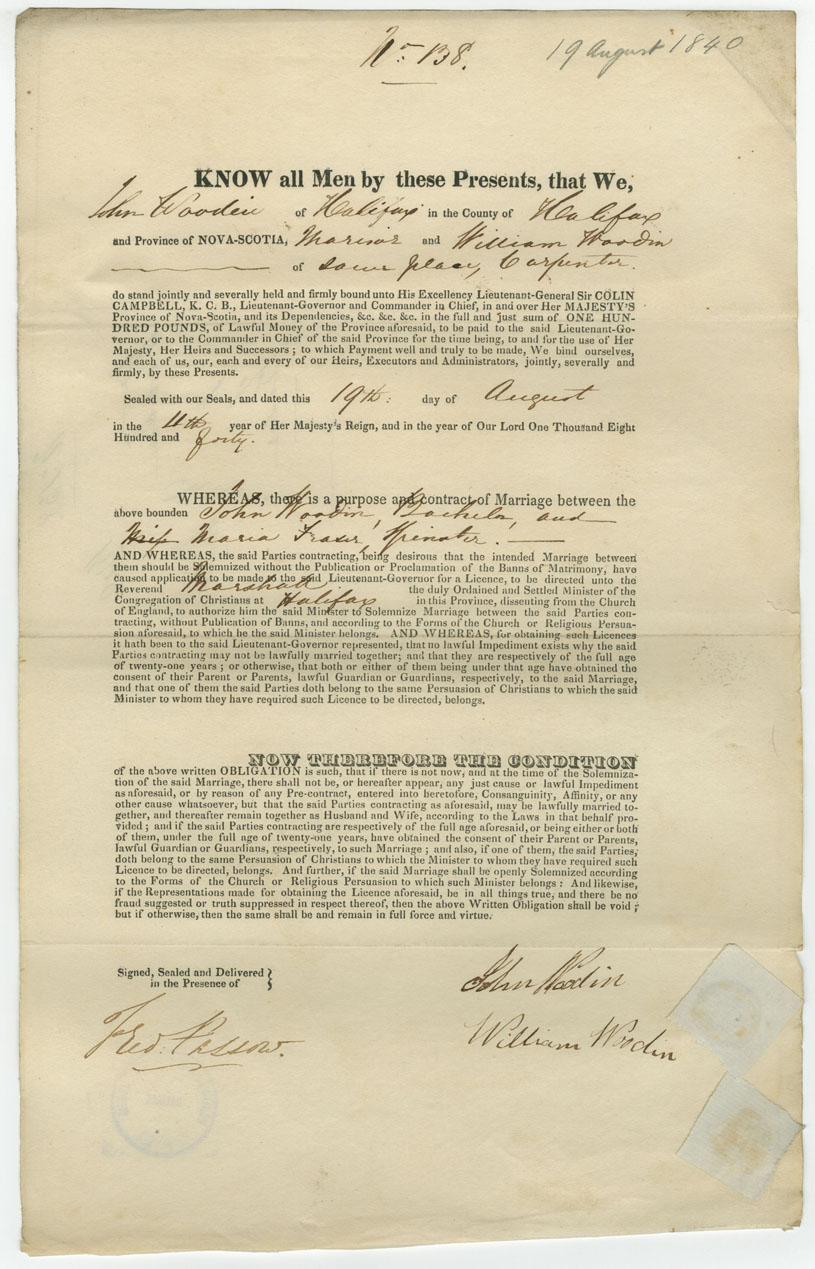 No. 138.
19 August 1840
KNOW all Men by these Presents, that We,
John Woodin of Halifax in the County of Halifax
and Province of NOVA-SCOTIA, Mariner and William Woodin
of same place, Carpenter.
do stand jointly and severally held and firmly bound unto His Excellency Lieutenant-General Sir COLIN
CAMPBELL, K. C. B., Lieutenant-Governor and Commander in Chief, in and over Her MAJESTY'S
Province of Nova-Scotia, and its Dependencies, &c. &c. &c. in the full and just sum of ONE HUN-
DRED POUNDS, of Lawful Money of the Province aforesaid, to be paid to the said Lieutenant-Go-
vernor, or to the Commander in Chief of the said Province for the time being, to and for the use of Her
Majesty, Her Heirs and Successors ; to which Payment well and truly to be made, We bind ourselves,
and each of us, our, each and every of our Heirs, Executors and Administrators, jointly, severally and
firmly, by these Presents.
Sealed with our Seals, and dated this 19th: day of August
in the 4th year of Her Majesty's Reign, and in the year of Our Lord One Thousand Eight
Hundred and forty.
WHEREAS, there is a purpose and contract of Marriage between the
above bounden John Woodin, Bachelor, and
Maria Fraser, Spinster.
AND WHEREAS, the said Parties contracting, being desirous that the intended Marriage between
them should be Solemnized without the Publication or Proclamation of the Banns of Matrimony, have
caused application to be made to the said Lieutenant-Governor for a Licence, to be directed unto the
Reverend Marshall the duly Ordained and Settled Minister of the
Congregation of Christians at Halifax in this Province, dissenting from the Church
of England, to authorize him the said Minister to Solemnize Marriage between the said Parties con-
tracting, without Publication of Banns, and according to the Forms of the Church or Religious Persua-
sion aforesaid, to which he the said Minister belongs. AND WHEREAS, for obtaining such Licences
it hath been to the said Lieutenant-Governor represented, that no lawful Impediment exists why the said
Parties contracting may not be lawfully married together; and that they are respectively of the full age
of twenty-one years ; or otherwise, that both or either of them being under that age have obtained the
consent of their Parent or Parents, lawful Guardian or Guardians, respectively, to the said Marriage,
and that one of them the said Parties doth belong to the same Persuasion of Christians to which the said
Minister to whom they have required such Licence to be directed, belongs.
NOW THEREFORE THE CONDITION
of the above written OBLIGATION is such, that if there is not now, and at the time of the Solemniza-
tion of the said Marriage, there shall not be, or hereafter appear, any just cause or lawful Impediment
as aforesaid, or by reason of any Pre-contract, entered into heretofore, Consanguinity, Affinity, or any
other cause whatsoever, but that the said Parties contracting as aforesaid, may be lawfully married to-
gether, and thereafter remain together as Husband and Wife, according to the Laws in that behalf pro-
vided ; and if the said Parties contracting are respectively of the full age aforesaid, or being either or both
of them, under the full age of twenty-one years, have obtained the consent of their Parent or Parents,
lawful Guardian or Guardians, respectively, to such Marriage ; and also, if one of them, the said Parties,
doth belong to the same Persuasion of Christians to which the Minister to whom they have required such
Licence to be directed, belongs. And further, if the said Marriage shall be openly Solemnized according
to the Forms of the Church or Religious Persuasion to which such Minister belongs : And likewise,
if the Representations made for obtaining the Licence aforesaid, be in all things true, and there be no
fraud suggested or truth suppressed in respect thereof, then the above Written Obligation shall be void ;
but if otherwise, then the same shall be and remain in full force and virtue.
Signed, Sealed and Delivered
in the Presence of
John Woodin
William Woodin
Fred. Passow.